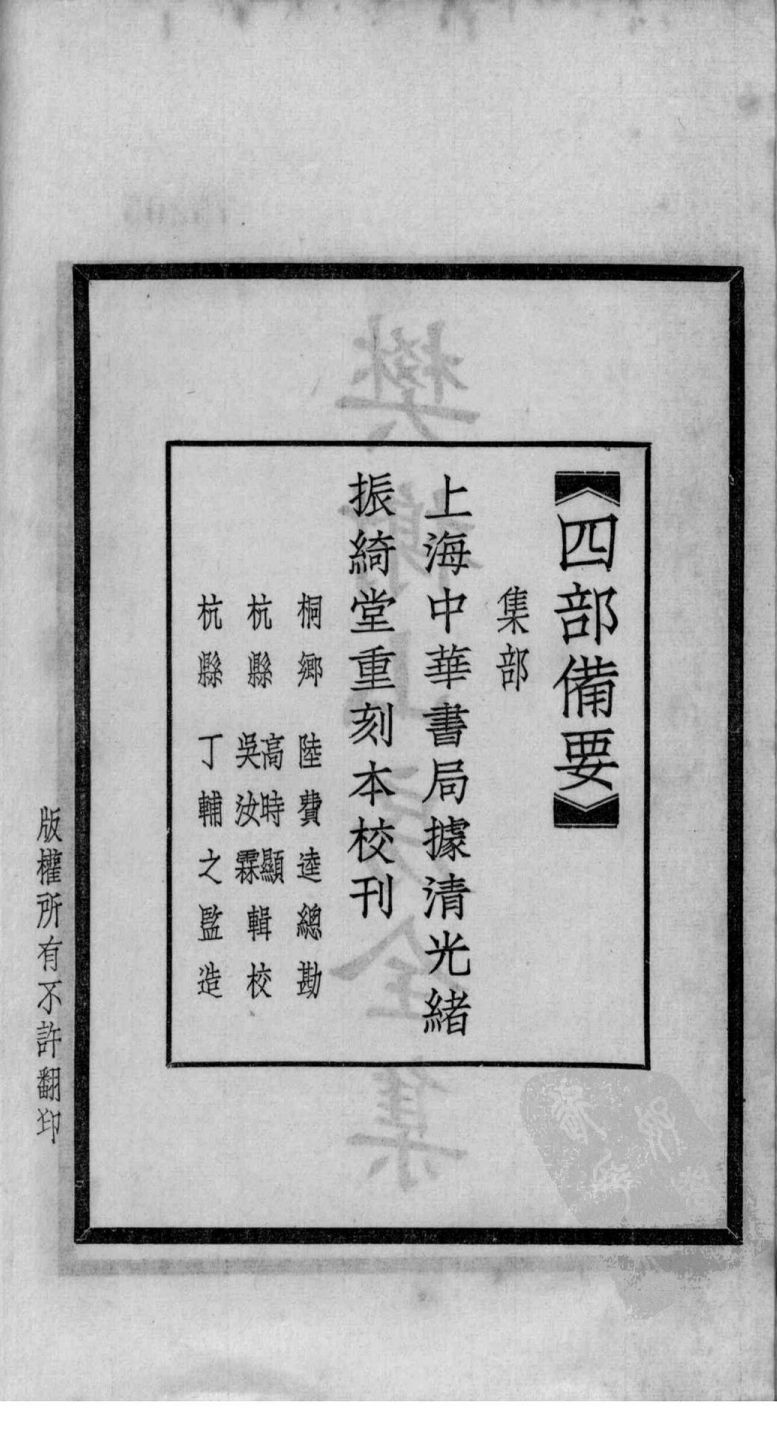 【四部備要】
集部
上海中華書局據清光緒
振綺堂重刻本校刊
桐鄉 陸費逵總勘
杭縣 高時顯 吳汝霖 輯校
杭縣 丁輔之監造
版權所有不許翻印